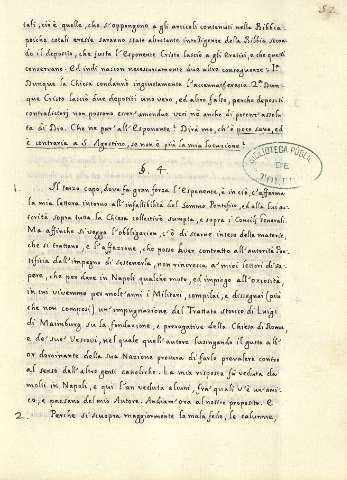 52
tali, cioè quelle, che s'oppongono a gli articoli contenuti nella Bibbia
poiche cotali eresie saranno state altrettante intelligenze della Bibbia secon-
do il deposito, che giusta l'Esponente Cristo lasciò a gli Eretici, e che questi
conservano. Ed indi nascon necessariamente due altre conseguenze: 1.ª
Dunque la Chiesa condannò ingiustamente l'accennate eresie. 2.ª Dun-
que Cristo lasciò due depositi uno vero, ed altro falso, perche depositi
contradittorj non possono esser' amendue veri nè anche di potenza asso-
luta di Dio. Che ne par' all'Esponente? Dirà mo, ch'è poco sana, ed
è contraria a S. Agostino, se non è più la mia locuzione?
§. 4.
BIBLIOTECA
DE
1. Il terzo capo, dove fa gran forza l'Esponente, è in ciò, c'afferma
la mia lettera intorno all'infallibilità del Sommo Pontefice, ed alla lui au-
torità sopra tutta la Chiesa collectivè sumpta, e sopra i Concilj Generali.
Ma affinche si vegga l'obbligazion, c'è di starne inteso delle materie,
che si trattano, e l'affezione, che posso aver contratto all'autorità Pon-
tificia dall'impegno di sostenerla, non rincresca a' miei lettori di sa-
pere, che per dare in Napoli qualche moto, ed impiego all'oziosità,
in cui vivemmo per molt'anni i Militari, compilai, e dissegnai (più
che non composi) un'impugnazione del Trattato storico di Luigi
di Maimburg su la fondazione, e prerogative della Chiesa di Roma
e de' suoi Vescovi, nel quale quell'autore lusingando il gusto all'o-
or dominante della sua Nazione procura di farlo prevalere contro
al senso dell'altre genti cattoliche. La mia risposta fù veduta da
molti in Napoli, e qui l'an veduta alcuni, fra' quali v'è un'ami-
co, e paesano del mio Autore. Andiam' ora al nostro proposito. E
2. Perche si scuopra maggiormente la mala fede, le calunnie,